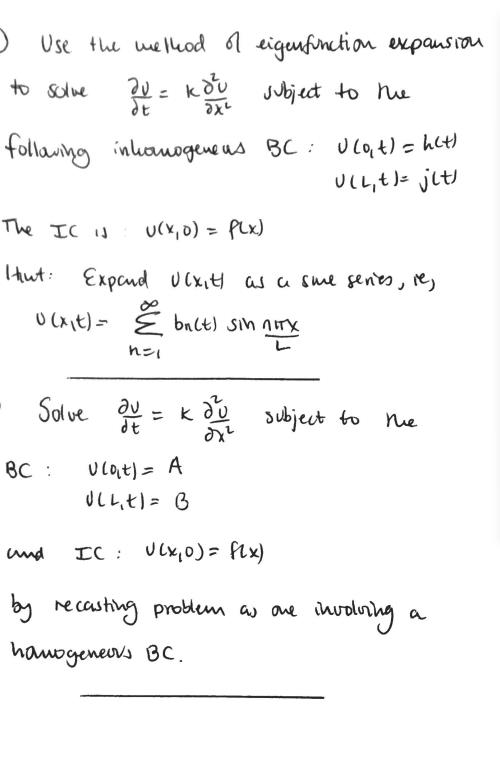 ) Use the method of eigenfunction expansion
to solve ∂u/∂t = k ∂²u/∂x² subject to the
following inhomogeneous BC : U(0,t) = h(t)
U(L,t) = j(t)
The IC is : U(x,0) = f(x)
Hint: Expand U(x,t) as a sine series, ie,
U(x,t) = ∑_{n=1}^{∞} bn(t) sin nπx/L
Solve ∂u/∂t = k ∂²u/∂x² subject to the
BC : U(0,t) = A
U(L,t) = B
and IC : U(x,0) = f(x)
by recasting problem as one involving a
homogeneous BC.